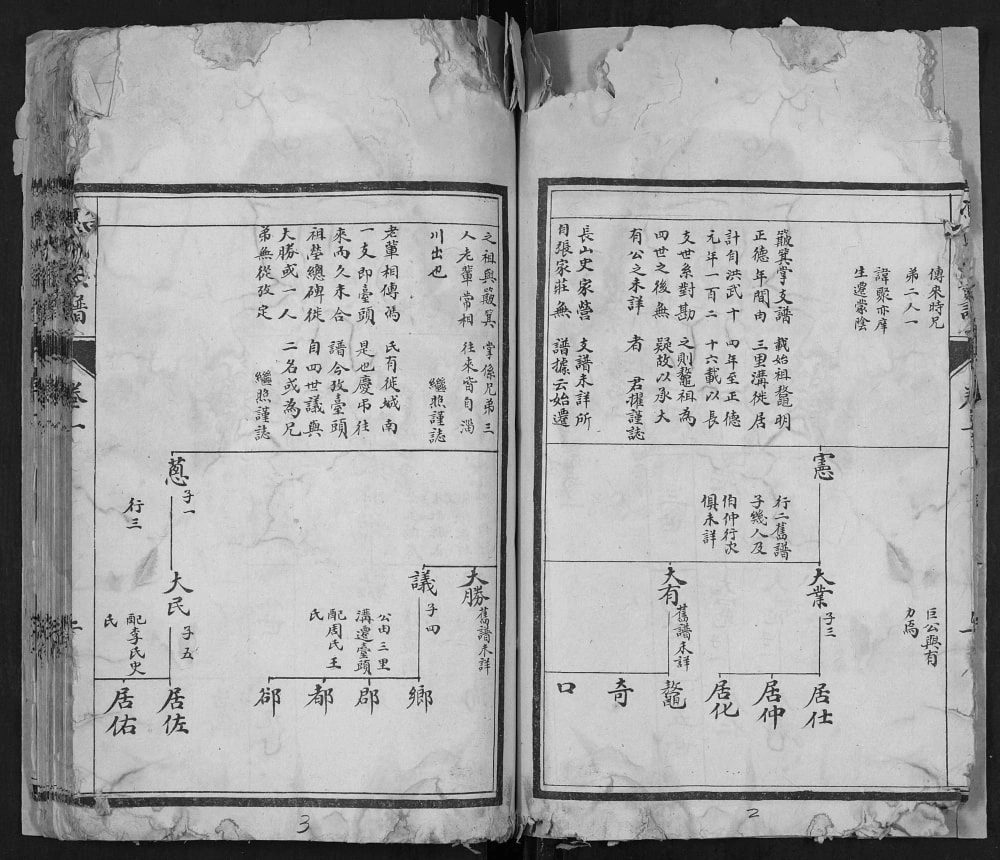 傳來時兄
弟二人一
諱聚亦庠
生遷蒙陰
簸箕掌支譜載始祖鼇明
正德年間由三里溝徙居
計自洪武十四年至正德
元年一百二十六載以長
支世系對勘之則鼇祖為
四世之後無疑故以承大
有公之未詳者 君擢謹誌
長山史家營支譜未詳所
自張家莊無譜據云始遷
憲
行二舊譜
子幾人及
伯仲行次
俱未詳
巨公與有
力焉
大業 子三
大有 舊譜未詳
居仕
居仲
居化
鼇
奇
口
2
之祖與簸箕掌係兄弟三
人老輩常相往來皆自淄
川出也 繼照謹誌
老輩相傳馮氏有徙城南
一支即臺頭是也慶弔往
來而久未合譜今攷臺頭
祖塋總碑徙自四世議與
大勝或一人二名或為兄
弟無從攷定 繼照謹誌
蒽 子一
行三
大勝 舊譜未詳
議 子四
公由三里
溝遷臺頭
配周氏王
氏
大民 子五
配李氏史
氏
鄉
郡
都
郤
居佐
居佑
卷一
3